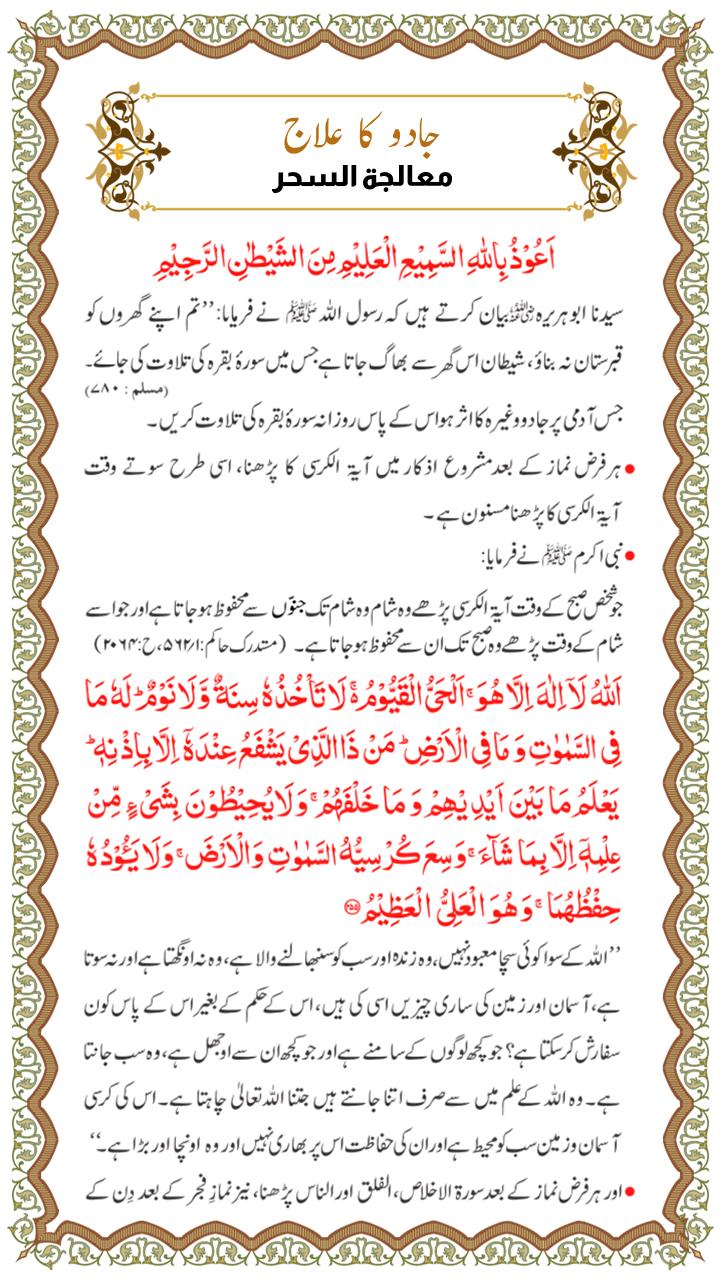 جادو کا علاج
معالجة السحر
اَعُوْذُ بِاللهِ السَّمِيْعِ الْعَلِيْمِ مِنَ الشَّيْطٰنِ الرَّجِيْمِ
سیدنا ابوہریرہ ؓ بیان کرتے ہیں کہ رسول اللہ ﷺ نے فرمایا: ’’تم اپنے گھروں کو
قبرستان نہ بناؤ، شیطان اس گھر سے بھاگ جاتا ہے جس میں سورۂ بقرہ کی تلاوت کی جائے۔
(مسلم : ۷۸۰)
جس آدمی پر جادو وغیرہ کا اثر ہو اس کے پاس روزانہ سورۂ بقرہ کی تلاوت کریں۔
• ہر فرض نماز کے بعد مشروع اذکار میں آیۃ الکرسی کا پڑھنا، اسی طرح سوتے وقت
آیۃ الکرسی کا پڑھنا مسنون ہے۔
• نبی اکرم ﷺ نے فرمایا:
جو شخص صبح کے وقت آیۃ الکرسی پڑھے وہ شام وہ شام تک جنوں سے محفوظ ہو جاتا ہے اور جو اسے
شام کے وقت پڑھے وہ صبح تک ان سے محفوظ ہو جاتا ہے۔ (مستدرک حاکم:۵۶۲/۱،ح:۲۰۶۴)
اَللهُ لَآ اِلٰهَ اِلَّا هُوَ ۚ اَلْحَيُّ الْقَيُّوْمُ ۚ۬ لَا تَاْخُذُهٗ سِنَةٌ وَّلَا نَوْمٌ ؕ لَهٗ مَا
فِي السَّمٰوٰتِ وَ مَا فِي الْاَرْضِ ؕ مَنْ ذَا الَّذِيْ يَشْفَعُ عِنْدَهٗۤ اِلَّا بِاِذْنِهٖ ؕ
يَعْلَمُ مَا بَيْنَ اَيْدِيْهِمْ وَ مَا خَلْفَهُمْ ۚ وَلَا يُحِيْطُوْنَ بِشَيْءٍ مِّنْ
عِلْمِهٖۤ اِلَّا بِمَا شَآءَ ۚ وَسِعَ كُرْسِيُّهُ السَّمٰوٰتِ وَالْاَرْضَ ۚ وَلَا يَـُٔوْدُهٗ
حِفْظُهُمَا ۚ وَهُوَ الْعَلِيُّ الْعَظِيْمُ ۝۲۵۵
’’اللہ کے سوا کوئی سچا معبود نہیں، وہ زندہ اور سب کو سنبھالنے والا ہے، وہ نہ اونگھتا ہے اور نہ سوتا
ہے، آسمان اور زمین کی ساری چیزیں اسی کی ہیں، اس کے حکم کے بغیر اس کے پاس کون
سفارش کر سکتا ہے؟ جو کچھ لوگوں کے سامنے ہے اور جو کچھ ان سے اوجھل ہے، وہ سب جانتا
ہے۔ وہ اللہ کے علم میں سے صرف اتنا جانتے ہیں جتنا اللہ تعالیٰ چاہتا ہے۔ اس کی کرسی
آسمان و زمین سب کو محیط ہے اور ان کی حفاظت اس پر بھاری نہیں اور وہ اونچا اور بڑا ہے۔‘‘
• اور ہر فرض نماز کے بعد سورۃ الاخلاص، الفلق اور الناس پڑھنا، نیز نمازِ فجر کے بعد دِن کے